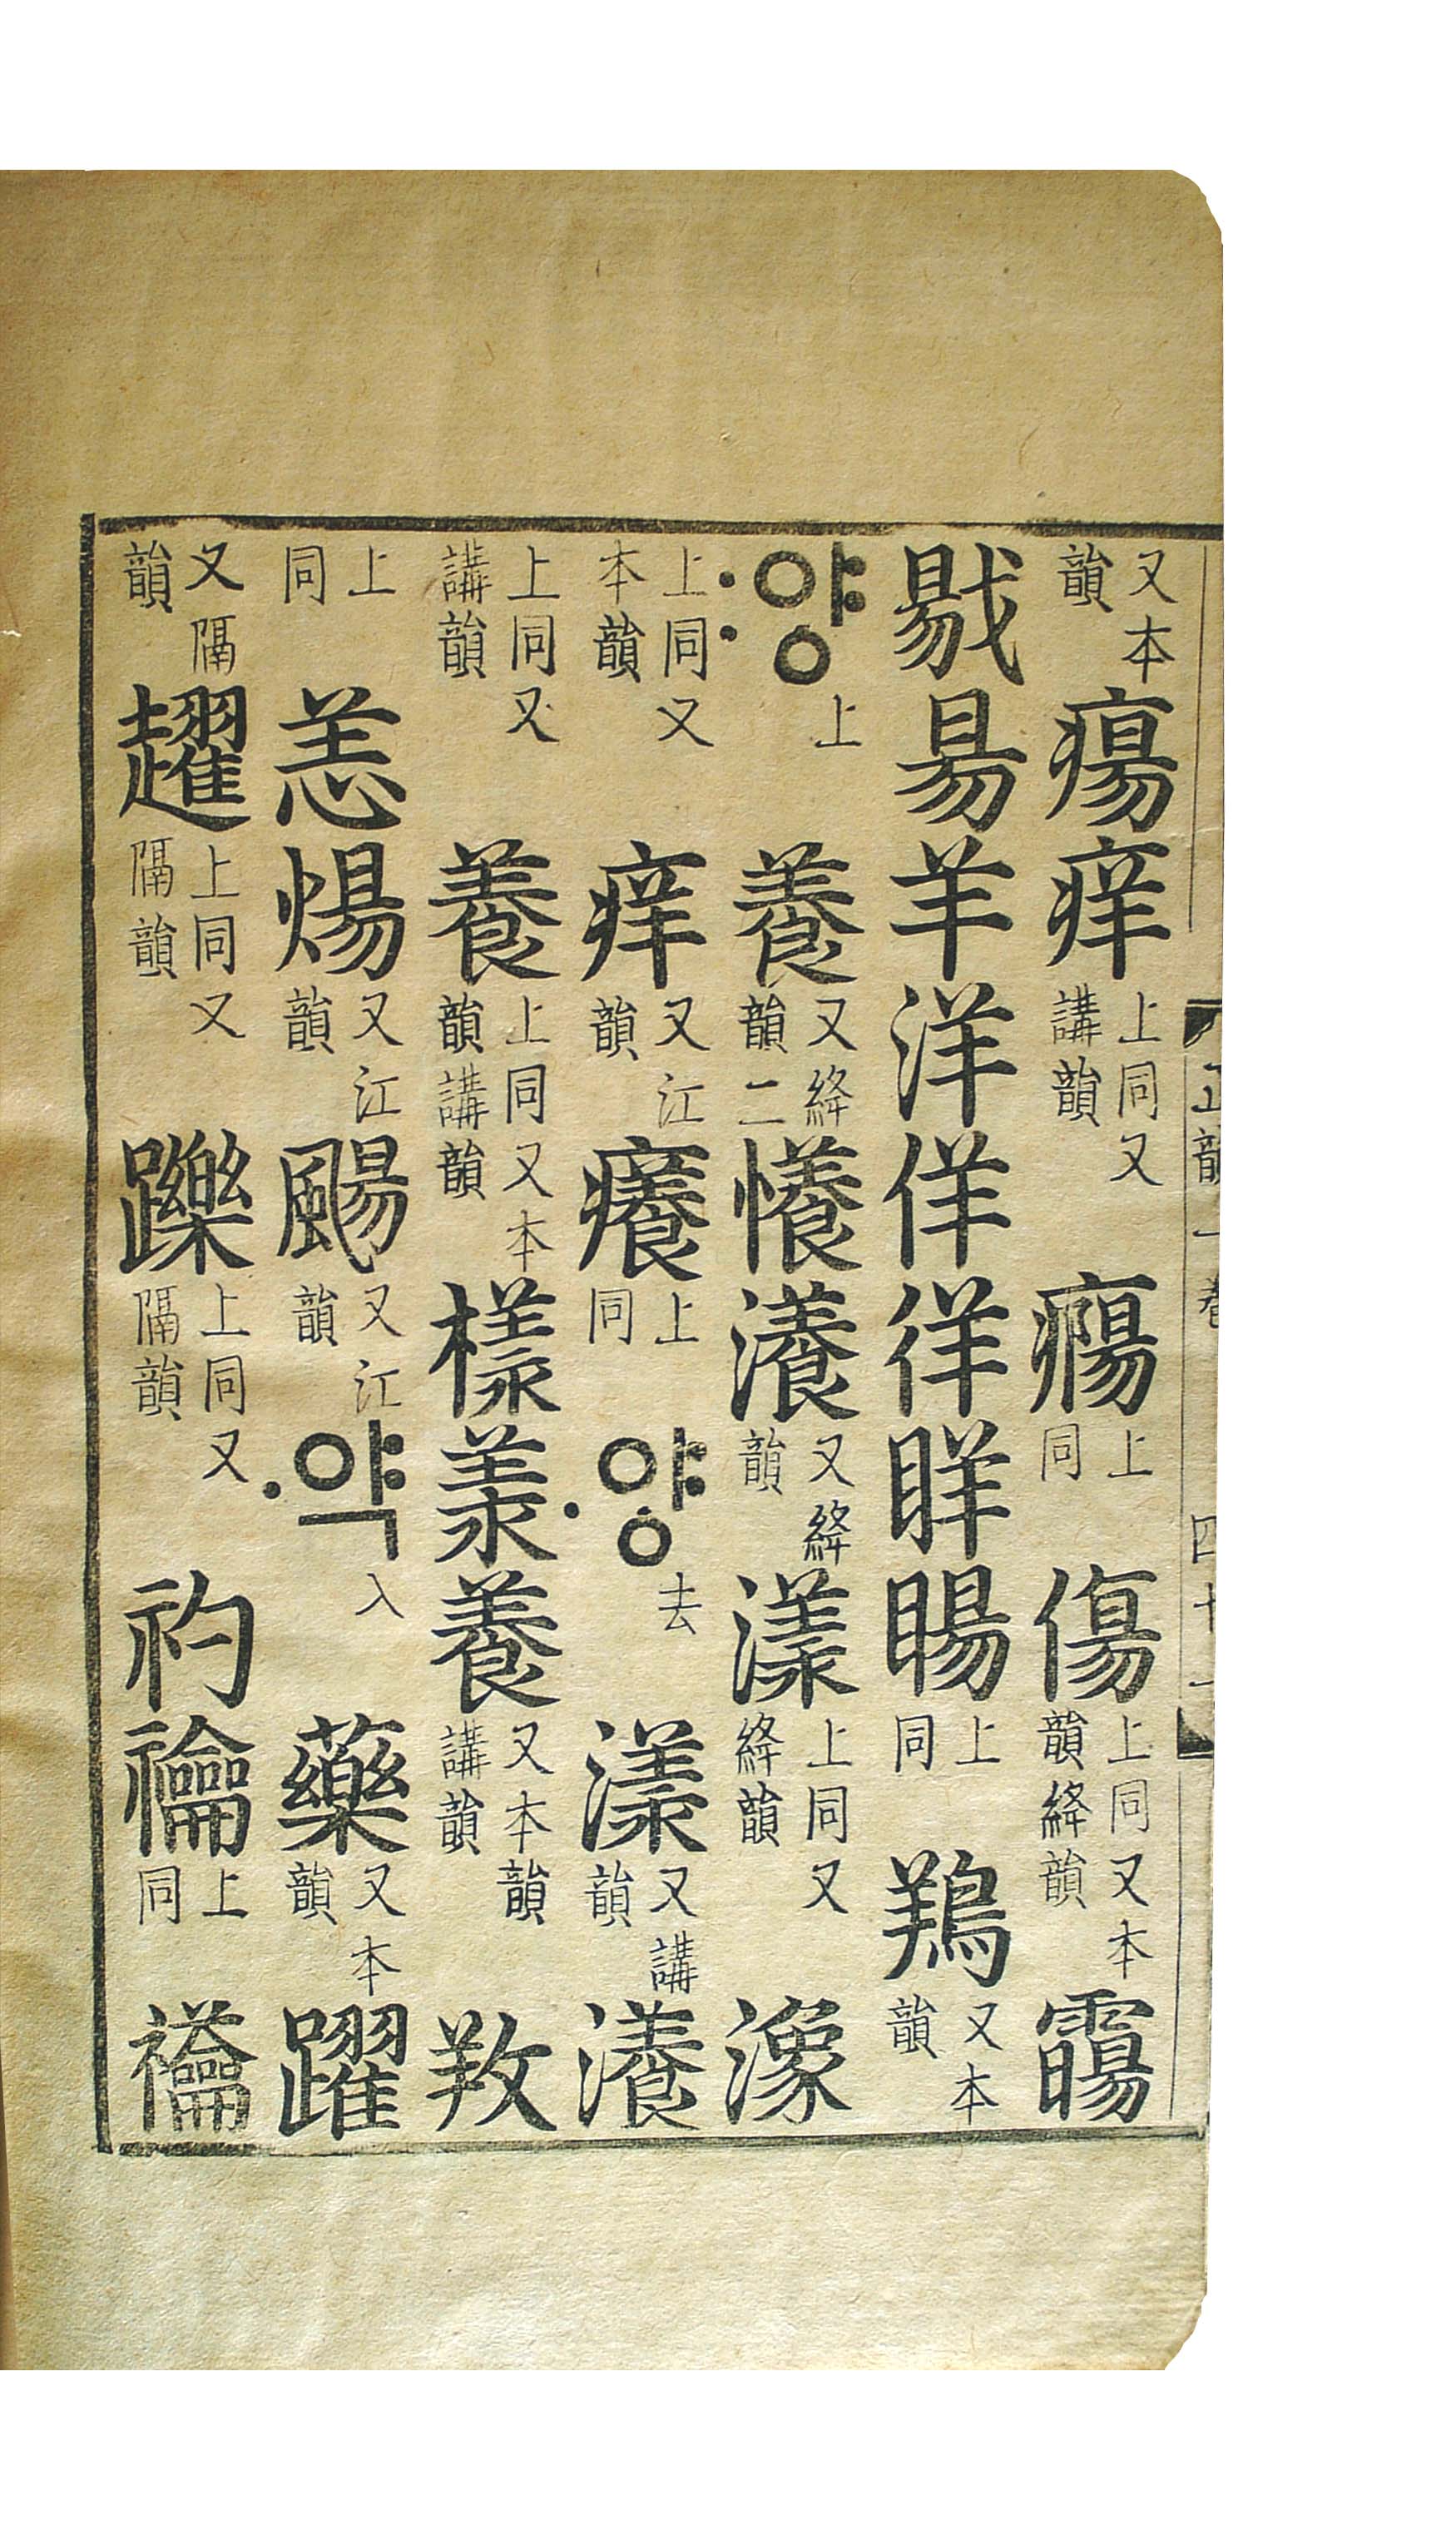 又本韻瘍痒上同又講韻㾮上同傷上同又本韻絳韻䬗
敭昜羊洋佯徉眻暘上同鴹又本韻
:양上養又絳韻二懩瀁又絳韻漾上同又絳韻潒
上同又本韻痒又江韻癢上同·양去漾又講韻瀁
上同又講韻養上同又本韻講韻樣羕養又本韻講韻𢼝
上同恙煬又江韻颺又江韻·약入藥又本韻躍
又隔韻趯上同又隔韻躒上同又隔韻礿禴上同
正韻一卷 四十一